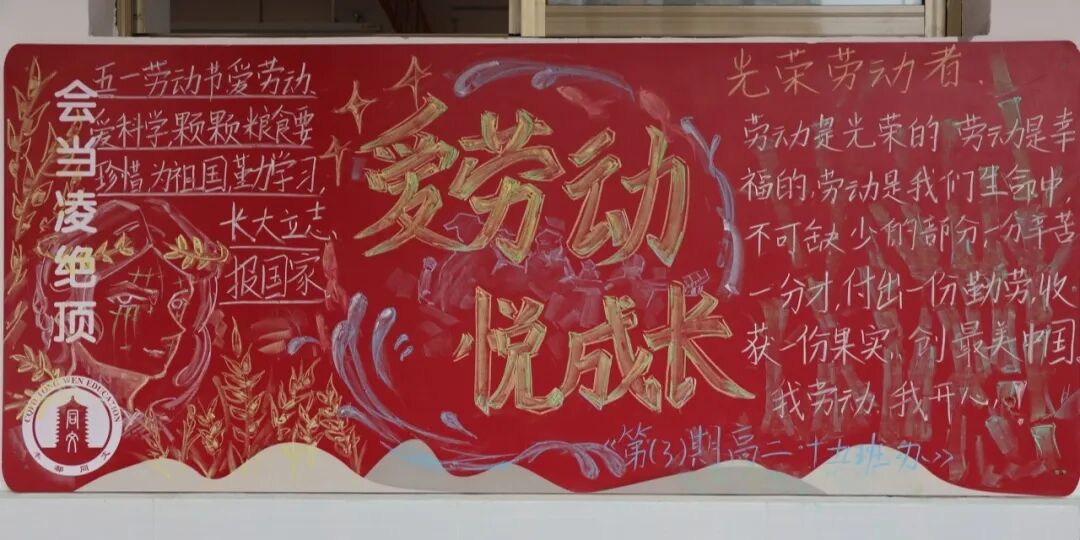 会当凌绝顶
五一劳动节爱劳动、
爱科学颗颗粮食要
珍惜为祖国,勤学习,
长大立志、
报国家
爱劳动
悦成长
光荣劳动者、
劳动是光荣的 劳动是幸
福的,劳动是我们生命中,
不可缺少的部分,一分辛苦
一分才,付出一份勤劳,收
获一份果实,创最美中国。
我劳动 我开心!
《第(3)期高二·十五班办》
同文